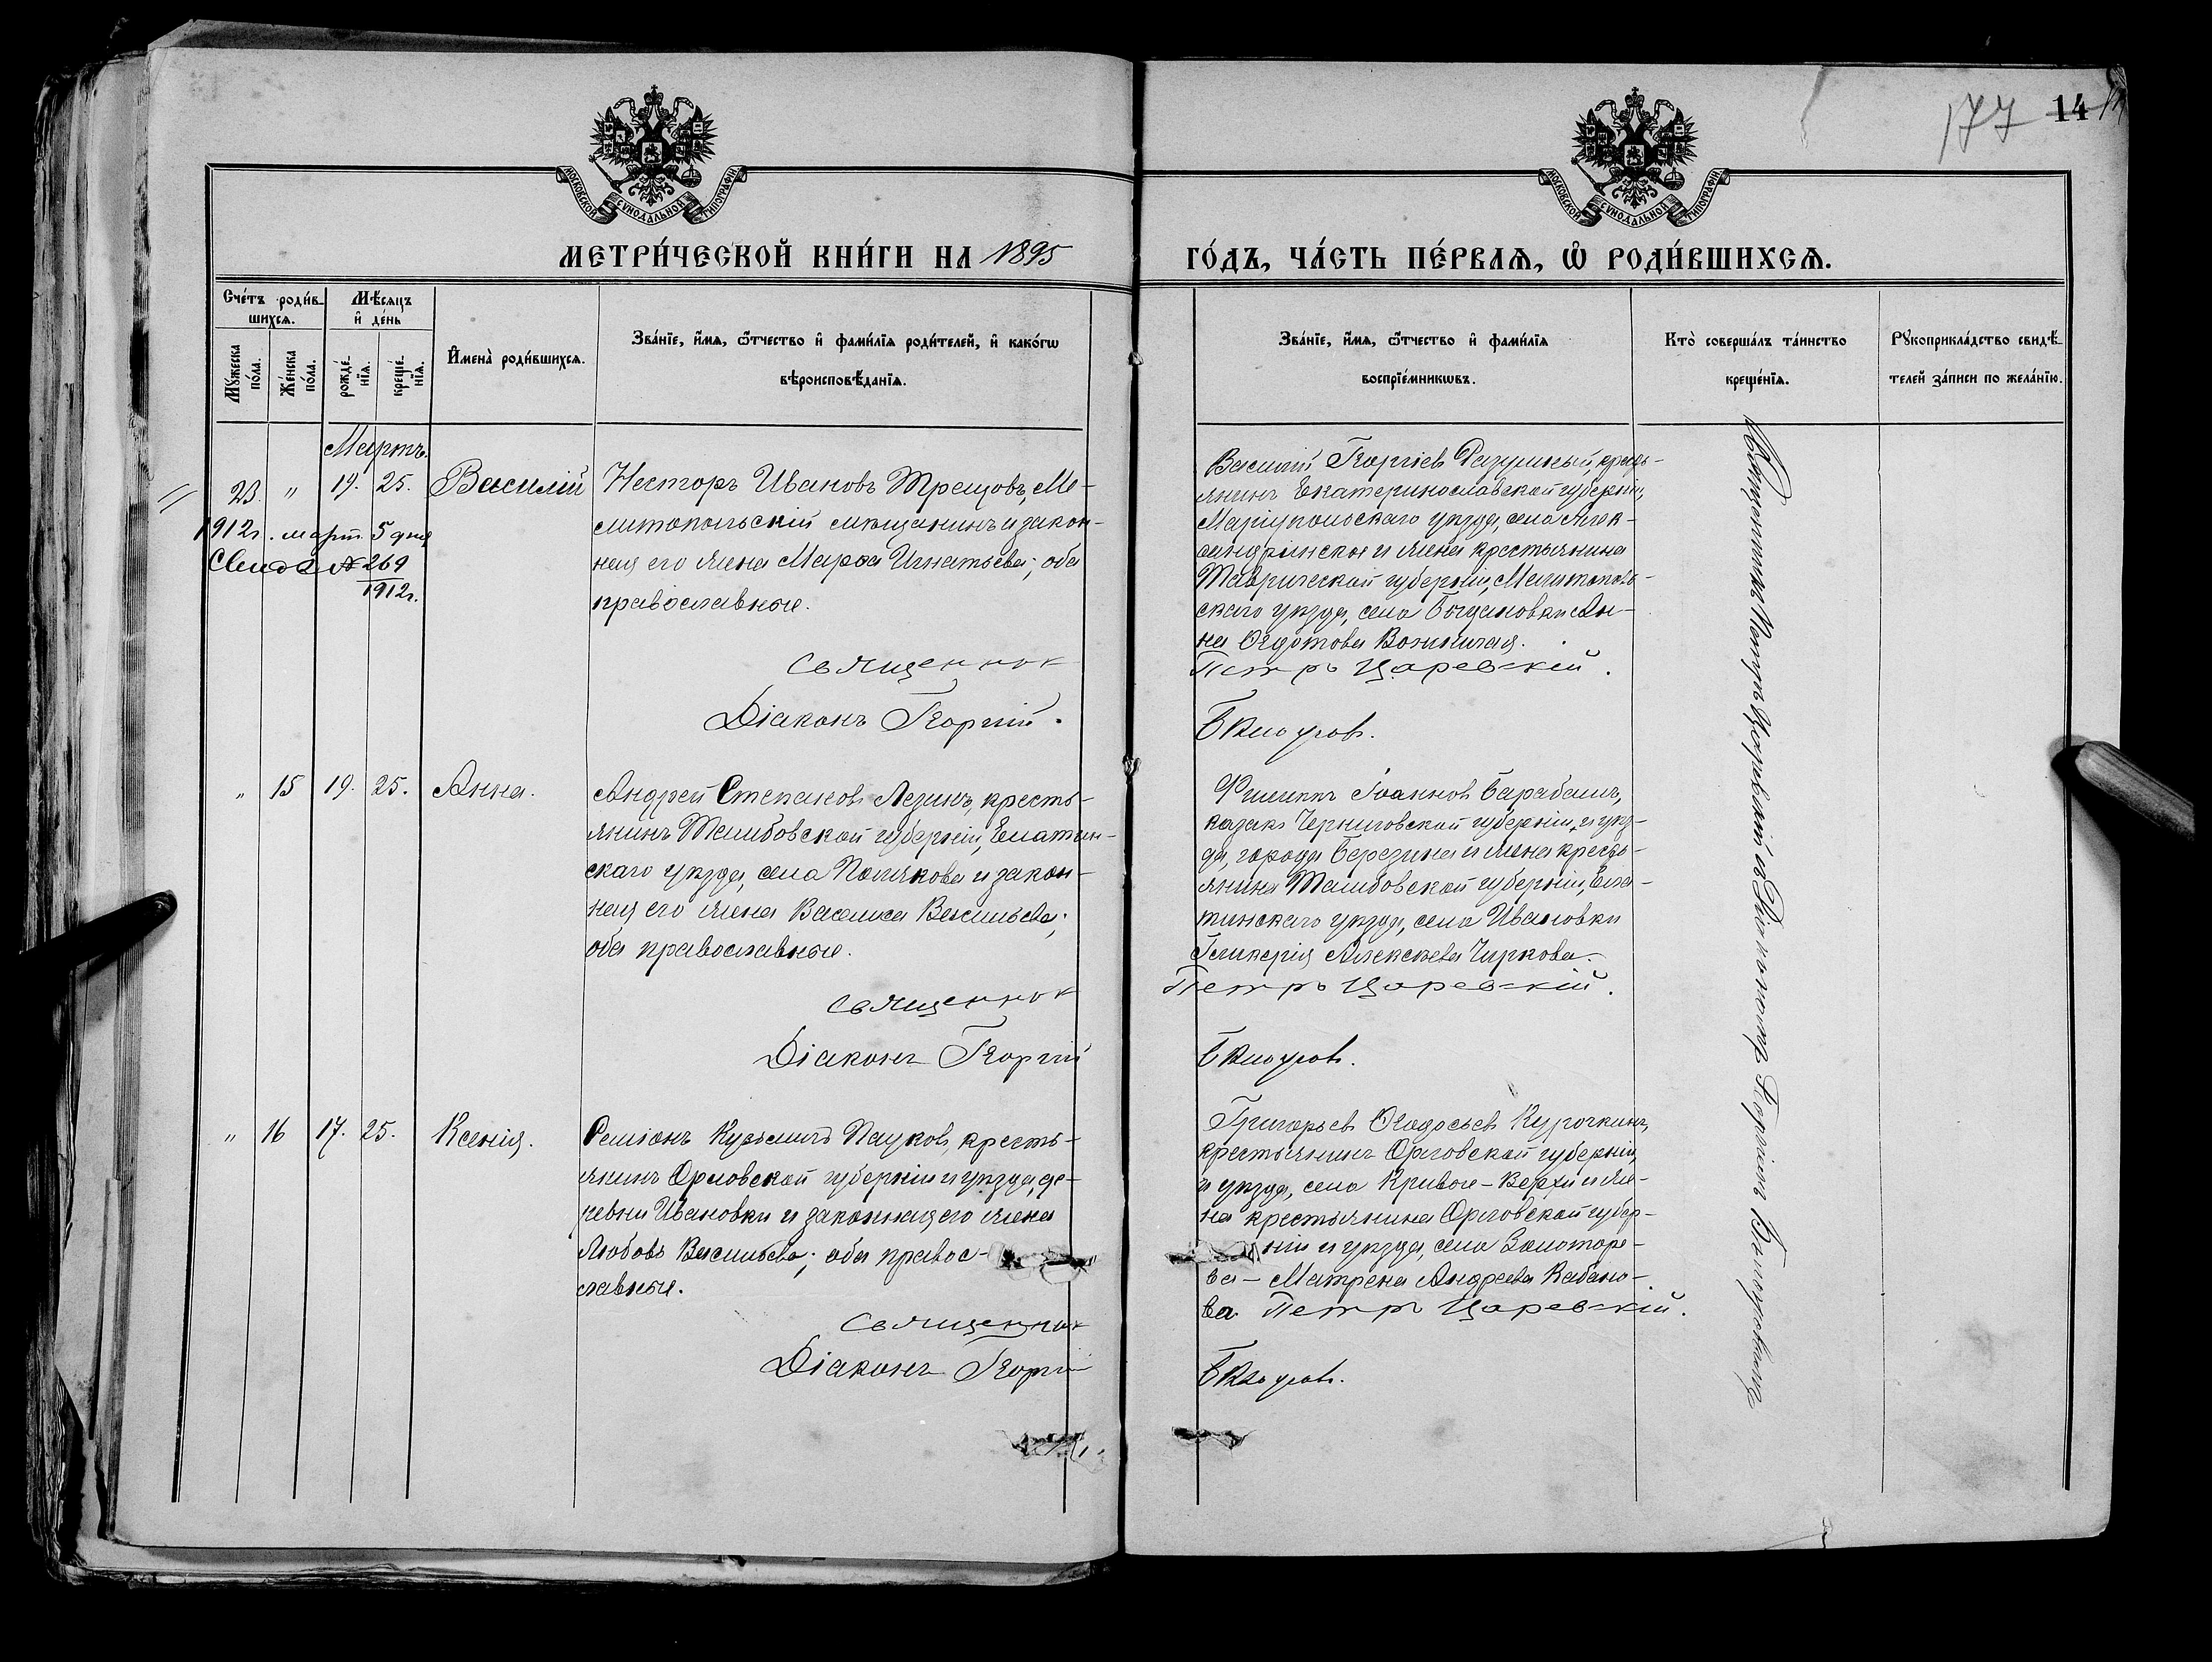 177 14
МОСКОВСКОЙ СѴНОДАЛЬНОЙ ТИПОГРАФІИ
МОСКОВСКОЙ СѴНОДАЛЬНОЙ ТИПОГРАФІИ
МЕТРИ́ЧЕСКОЙ КНИ́ГИ НА 1895
ГО́ДЪ, ЧА́СТЬ ПЕ́РВАѦ, Ѡ҆ РОДИ́ВШИХСѦ.
Сче́тъ роди́в-
шихсѧ.
Мꙋ́жеска по́ла.
Же́нска по́ла.
Мѣ́сѧцъ
и҆ де́нь
рожде́-
нїѧ.
креще́-
нїѧ.
И҆мена̀ роди́вшихсѧ.
Зва́нїе, и҆́мѧ, ѻ҆́тчество и҆ фами́лїѧ роди́телей, и҆ како́гѡ
вѣроисповѣ́данїѧ.
Зва́нїе, и҆́мѧ, ѻ҆́тчество и҆ фами́лїѧ
воспрїе́мникѡвъ.
Кто̀ соверша́лъ та́инство
креще́нїѧ.
Рꙋкоприкла́дство свидѣ́-
телей за́писи по жела́нїю.
Мартъ.
23. " 19. 25. Василій
1912г. март. 5 дня
Свид. № 269
1912г.
Несторъ Ивановъ Трещовъ, Ме-
литопольскій мѣщанинъ и закон-
ная его жена Марѳа Игнатьева; оба
православные.
Священник
Діаконъ Георгій
Василій Георгіев Разумный, кресть-
янинъ Екатеринославской губерніи,
Маріупольскаго уѣзда, села Алек-
сандринскоя и жена крестьянина
Таврической губерніи, Мелитополь-
скаго уѣзда, села Богдановки Ан-
на Ѳедотова
Петръ Царевскій.
" 15 19. 25. Анна.
Андрей Степановъ Лезинъ, кресть-
янинъ Тамбовской губерніи, Елатьин-
скаго уѣзда, села Полякова и закон-
ная его жена Василиса Васильева;
оба православные.
Священник
Діаконъ Георгій
Филиппъ Іоаннов Барабашъ,
казакъ Черниговской губерніи, и уѣз-
да, города Березина и жена кресть-
янина Тамбовской губерніи, Ела-
тинскаго уѣзда, села Ивановки
Гликерія Алексѣева Чиркова.
Петръ Царевскій.
" 16 17. 25. Ксенія.
Симіонъ Кузьмичъ Пауковъ, кресть-
янинъ Орловской губерніи и уѣзда, де-
ревни Ивановки и законная его жена
Любовь Васильева; оба правос-
лавные.
Священник
Діаконъ Георгій
Григорьев Ѳеодосьев Курочкинъ,
крестьянинъ Орловской губерніи,
и уѣзда, села Кривые-Верхи и же-
на крестьянина Орловской губер-
ніи и уѣзда, села Золотаре-
ва - Матрена Андреева Кабано-
ва Петръ Царевскій.
Священникъ Петръ Царевскій съ Діакономъ Георгіемъ